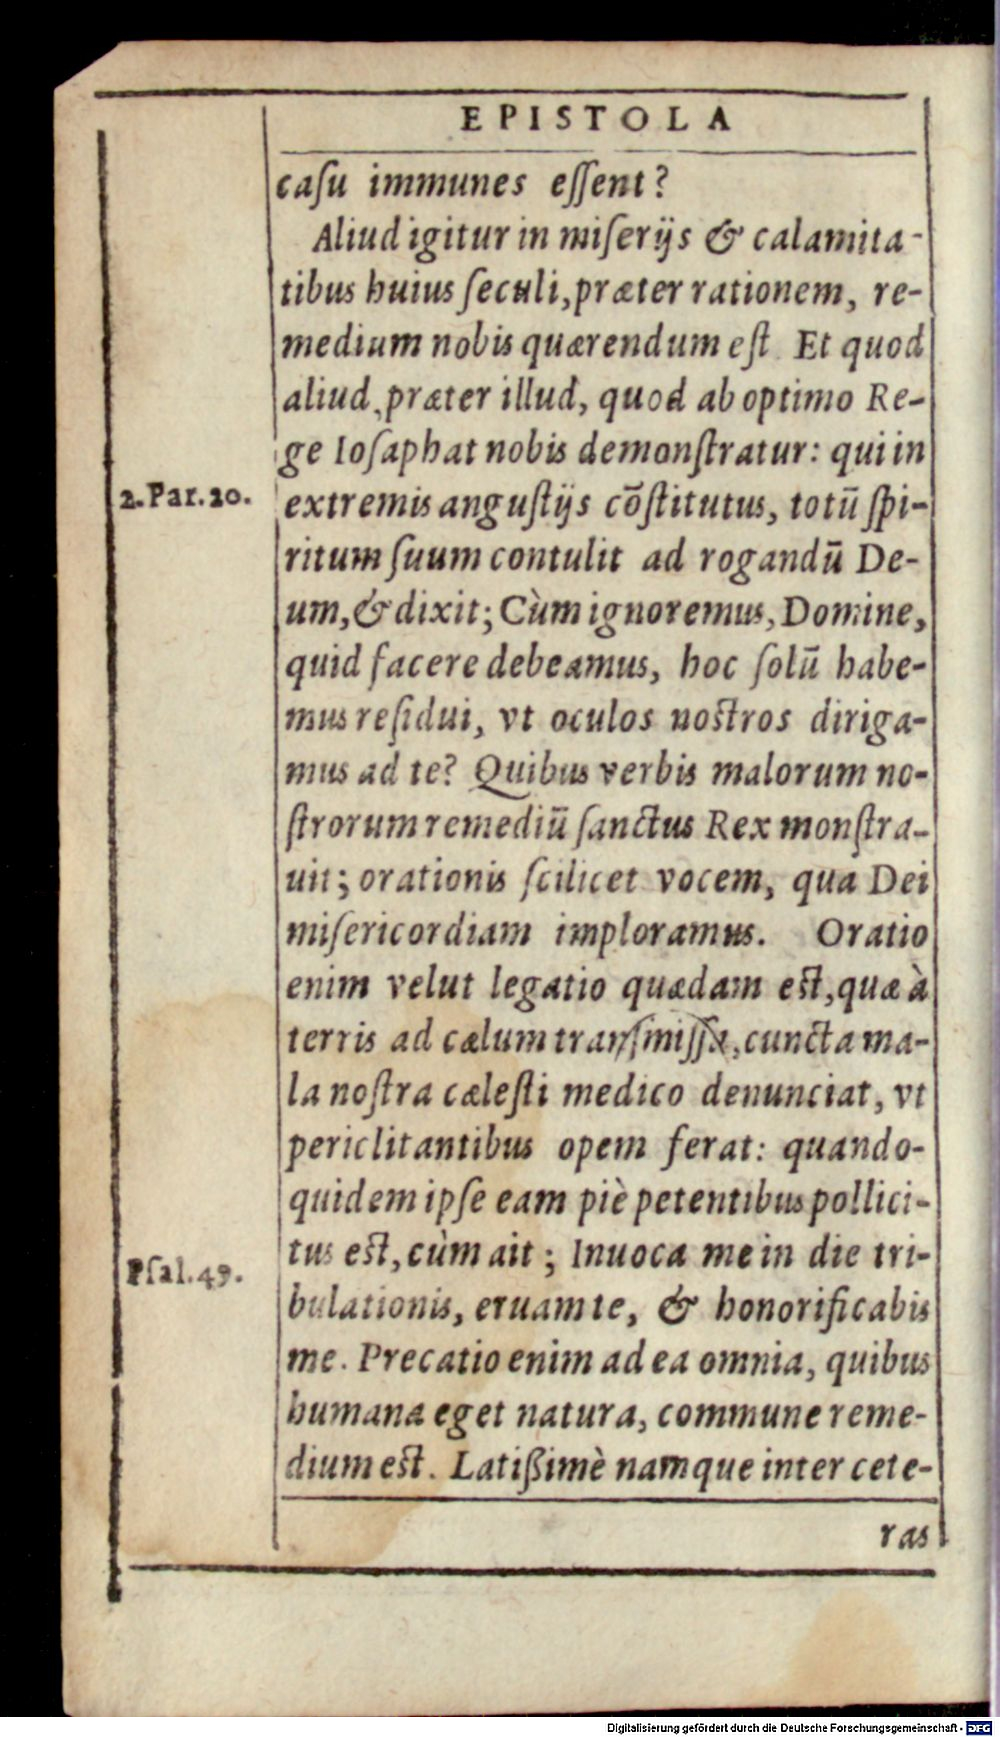 EPISTOLA
caſu immunes eſſent?
Aliud igitur in miſerijs & calamita-
tibus huius ſeculi, præter rationem, re-
medium nobis quærendum eſt. Et quod
aliud, præter illud, quod ab optimo Re-
ge Ioſaphat nobis demonſtratur: qui in
2. Par. 20.
extremis anguſtijs cõſtitutus, totũ ſpi-
ritum ſuum contulit ad rogandũ De-
um, & dixit; Cùm ignoremus, Domine,
quid facere debeamus, hoc ſolũ habe-
mus reſidui, vt oculos noſtros diriga-
mus ad te? Quibus verbis malorum no-
ſtrorum remediũ ſanctus Rex monſtra-
uit; orationis ſcilicet vocem, qua Dei
miſericordiam imploramus. Oratio
enim velut legatio quædam eſt, quæ à
terris ad cælum tranſmiſſa, cuncta ma-
la noſtra cæleſti medico denunciat, vt
periclitantibus opem ferat: quando-
quidem ipſe eam piè petentibus pollici-
tus eſt, cùm ait; Inuoca me in die tri-
Pſal. 49.
bulationis, eruam te, & honorificabis
me. Precatio enim ad ea omnia, quibus
humana eget natura, commune reme-
dium eſt. Latißimè namque inter cete-
ras
Digitalisierung gefördert durch die Deutsche Forschungsgemeinschaft - DFG